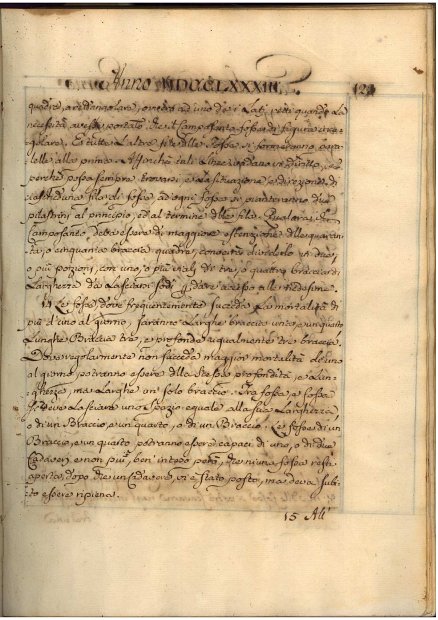 Anno MDCCLXXXIII. 12
quadro, o rettangolare, ovvero ad uno de i Lati, retti quando la
necessità avesse portato, che il Camposanto fosse di figura irre-
golare, et tutte l'altre file delle Fosse si formeranno para-
lelle alla prima. Affinchè tali file rispondano in diritto, e
perchè possa sempre trovarsi, e la situazione, e direzione di
ciascheduna fila di fosse, ad ogni fossa si pianteranno due
pilastrini al principio, ed al termine della fila. Qualora il
Camposanto debba essere di maggiore estenzione delle quaran-
ta, o cinquanta braccia quadre, converrà dividerlo in due,
o più porzioni, con uno, o più viali di tre, o quattro braccia di
Larghezza da Lasciarsi sodi p dare accesso alle medesime.
14 Le fosse, dove frequentemente succeda La mortalità di
più d'uno al giorno, saranno Larghe braccia uno, e un quarto
Lunghe Braccia tre, e profonde ugualmente tre braccia.
Dove regolarmente non succeda maggior mortalità di uno
al giorno potranno essere della stessa profondità, e Lun-
ghezza, ma Larghe un' solo braccio. Tra fossa, e fossa
si deve Lasciare uno spazio eguale alla sua Larghezza,
o di un Braccio, e un quarto, o di un Braccio. Le fosse di un
Braccio, e un quarto potranno essere capaci di uno, o di due
Cadaveri, e non più, ben' inteso però, che niuna fossa resti
aperta dopo che un Cadavere vi è stato posto, ma deva subi-
to essere ripiena.
15 Alli